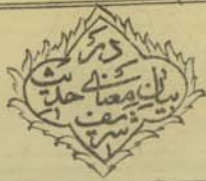 در
بیان معنای حدیث
شریف